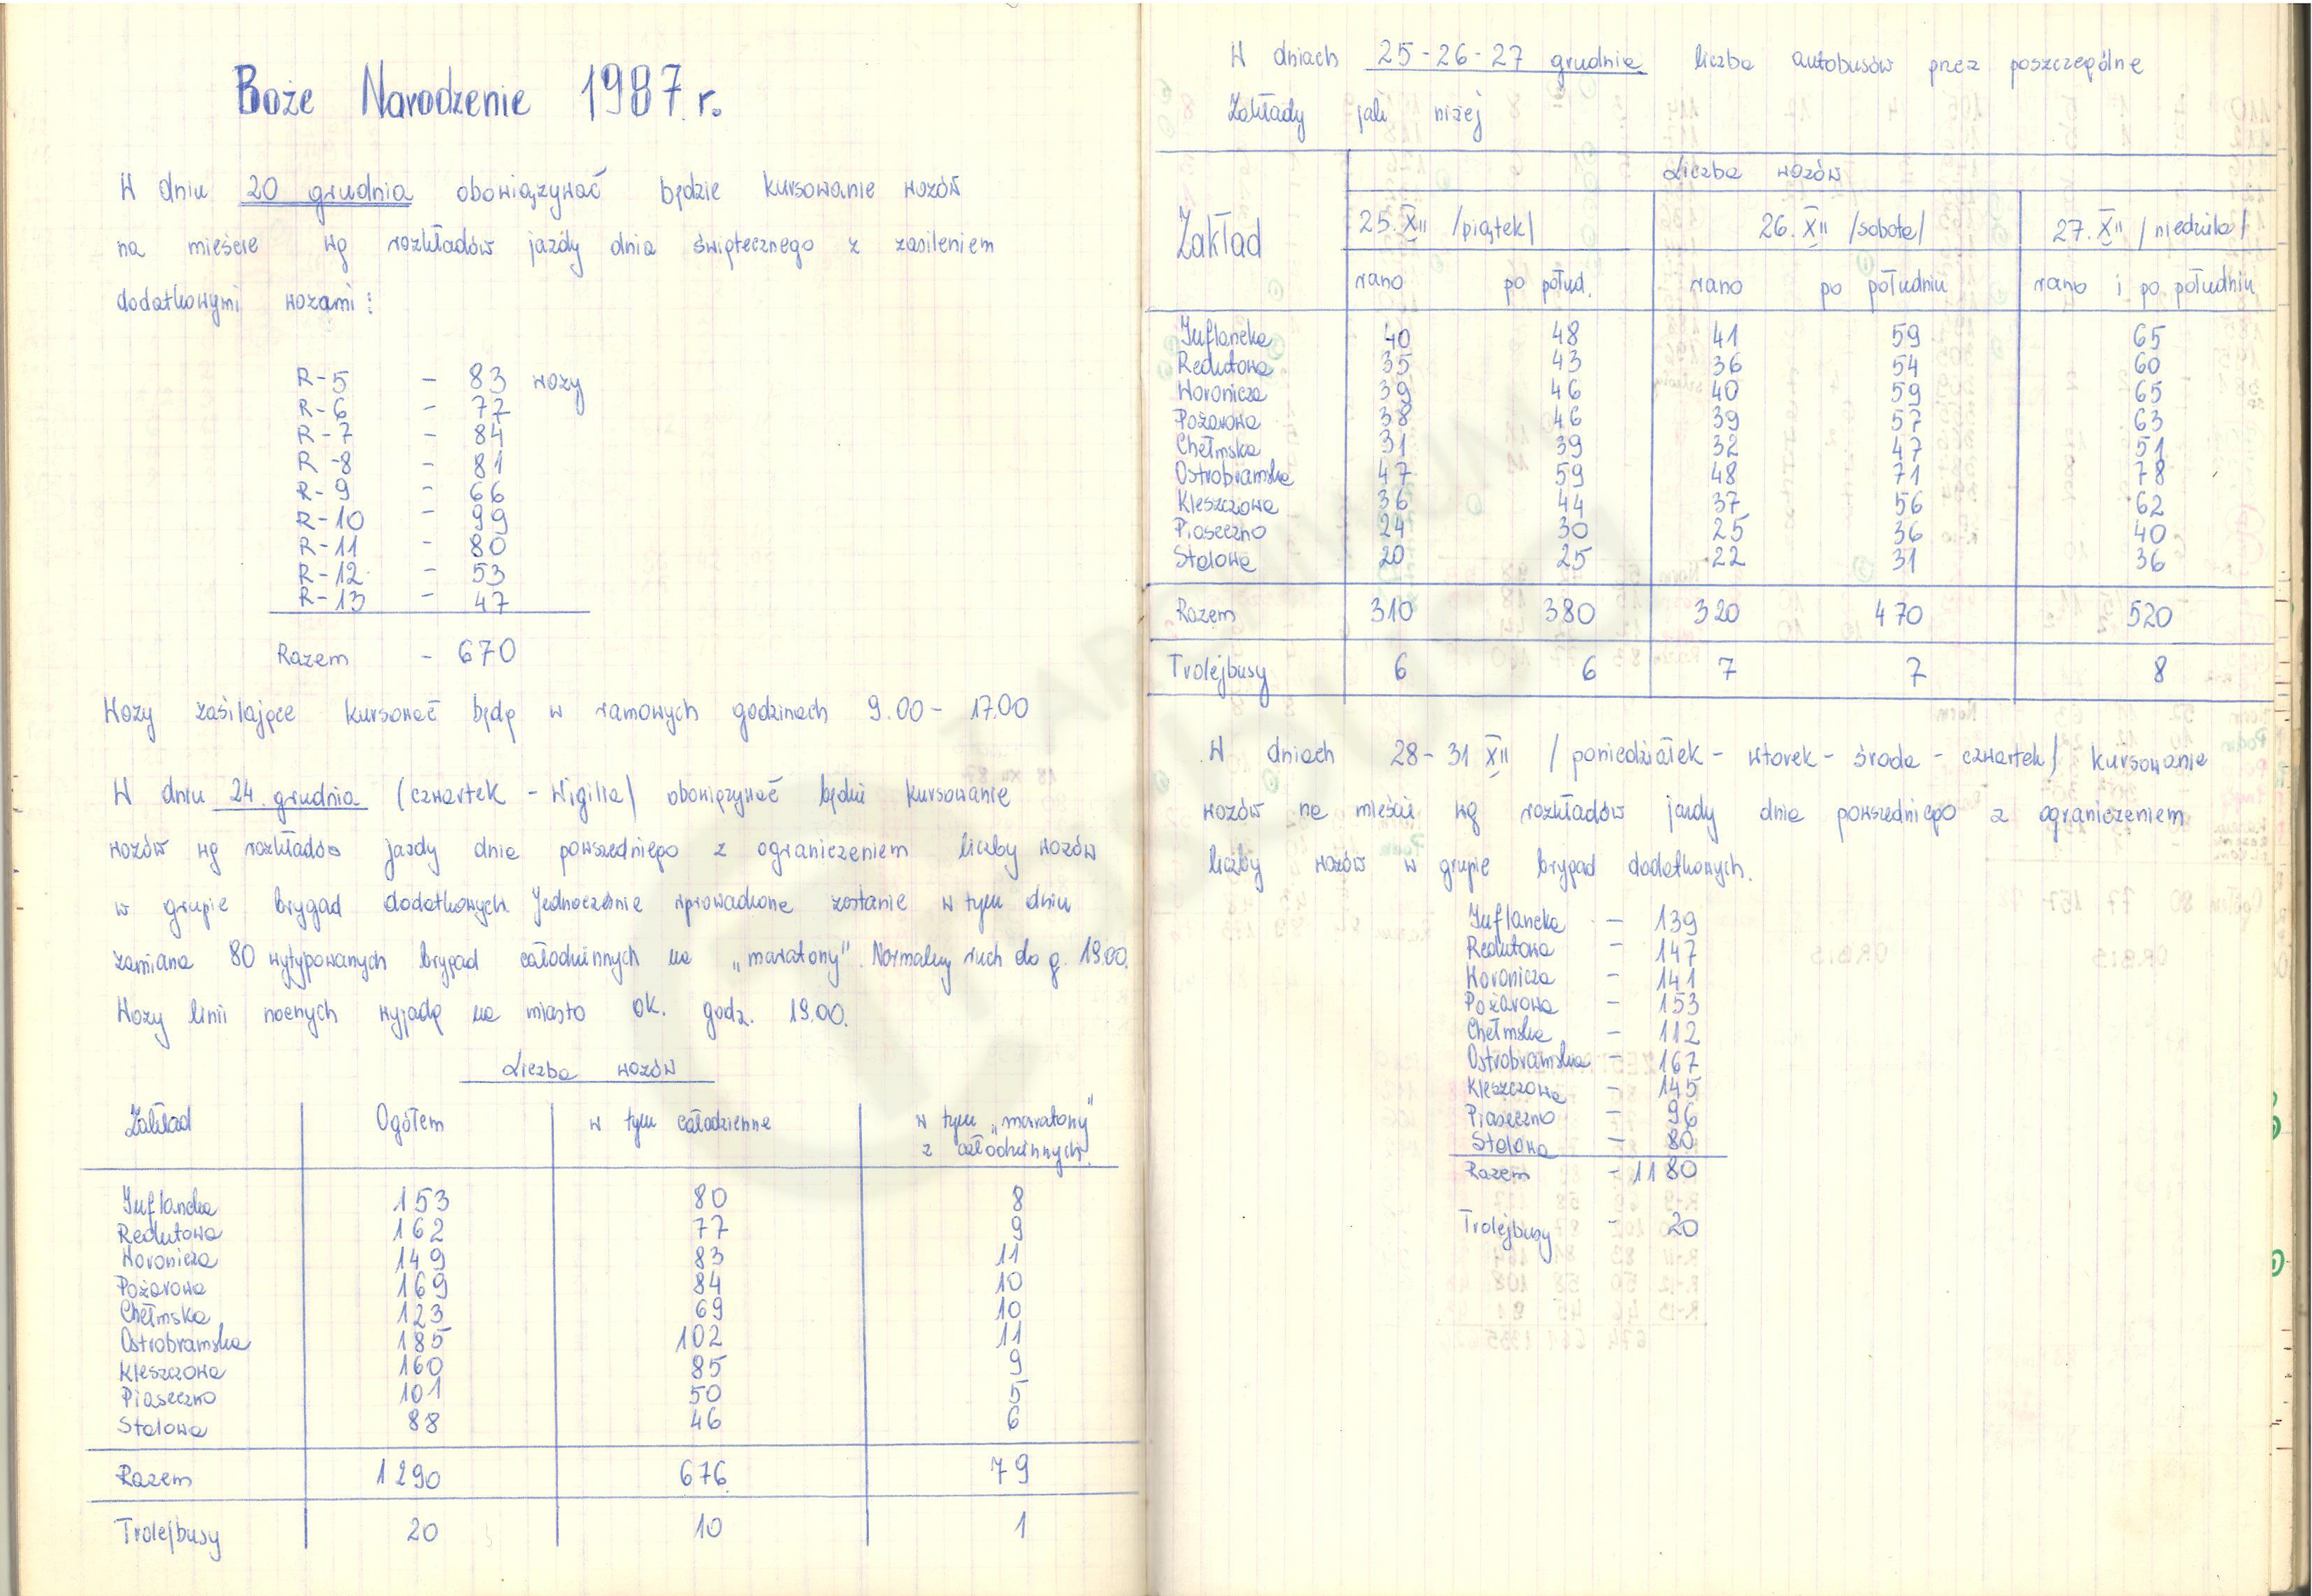 Boże Narodzenie 1987 r.
W dniu 20 grudnia obowiązywać będzie kursowanie wozów
na mieście wg rozkładów jazdy dnia świątecznego z zasileniem
dodatkowymi wozami:
R-5 - 83 wozy
R-6 - 77
R-7 - 84
R-8 - 81
R-9 - 66
R-10 - 99
R-11 - 80
R-12 - 53
R-13 - 47
Razem - 670
Wozy zasilające kursować będą w ramowych godzinach 9.00 - 17.00
W dniu 24. grudnia (czwartek - Wigilia) obowiązywać będzie kursowanie
wozów wg rozkładów jazdy dnia powszedniego z ograniczeniem liczby wozów
w grupie brygad dodatkowych. Jednocześnie wprowadzone zostanie w tym dniu
zamiana 80 wytypowanych brygad całodziennych na „maratony". Normalny ruch do g. 19.00.
Wozy linii nocnych wyjadą na miasto ok. godz. 19.00.
Liczba wozów
Zakład Ogółem w tym całodzienne w tym „maratony"
z całodziennych
Inflancka 153 80 8
Redutowa 162 77 9
Woronicza 149 83 11
Pożarowa 169 84 10
Chełmska 123 69 10
Ostrobramska 185 102 11
Kleszczowa 160 85 9
Piaseczno 101 50 5
Stalowa 88 46 6
Razem 1290 676 79
Trolejbusy 20 10 1
W dniach 25-26-27 grudnia liczba autobusów przez poszczególne
Zakłady jak niżej
Liczba wozów
Zakład 25.XII /piątek/ 26.XII /sobota/ 27.XII /niedziela/
rano po połud. rano po południu rano i po południu
Inflancka 40 48 41 59 65
Redutowa 35 43 36 54 60
Woronicza 39 46 40 59 65
Pożarowa 38 46 39 57 63
Chełmska 31 39 32 47 51
Ostrobramska 47 59 48 71 78
Kleszczowa 36 44 37 56 62
Piaseczno 24 30 25 36 40
Stalowa 20 25 22 31 36
Razem 310 380 320 470 520
Trolejbusy 6 6 7 7 8
W dniach 28-31 XII /poniedziałek - wtorek - środa - czwartek/ kursowanie
wozów na mieście wg rozkładów jazdy dnia powszedniego z ograniczeniem
liczby wozów w grupie brygad dodatkowych.
Inflancka - 139
Redutowa - 147
Woronicza - 141
Pożarowa - 153
Chełmska - 112
Ostrobramska - 167
Kleszczowa - 145
Piaseczno - 96
Stalowa - 80
Razem - 1180
Trolejbusy - 20